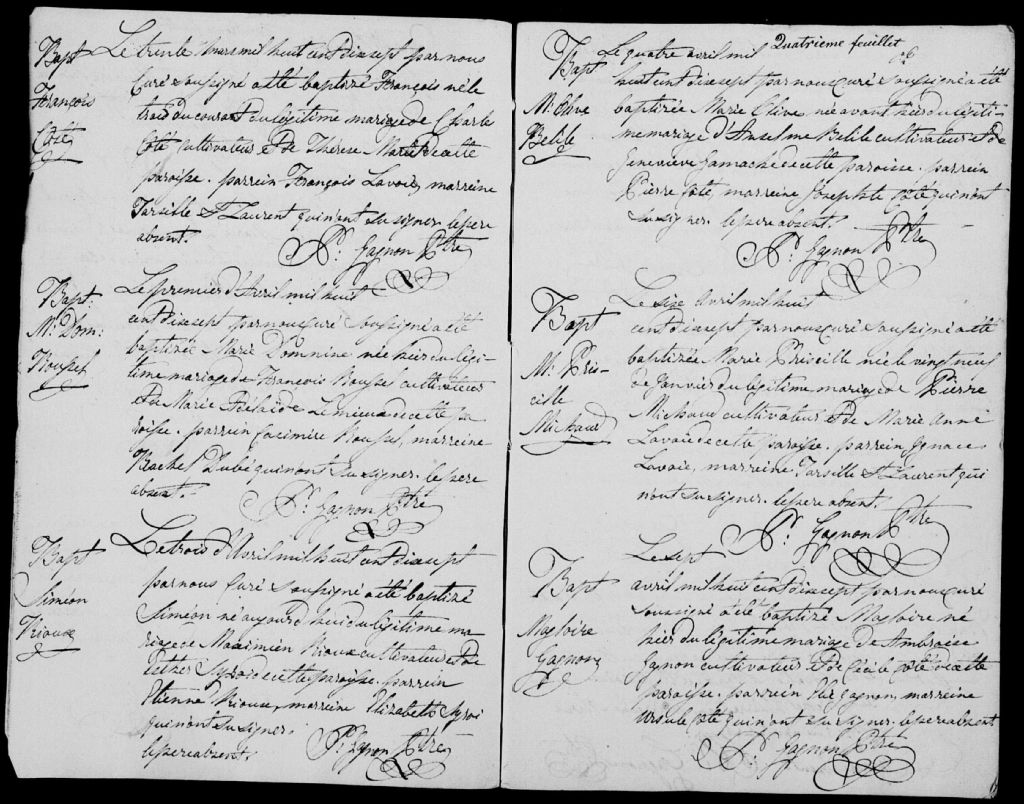 Bapt
François
Côté
Le trente Mars mil huit cent dixsept par nous
Curé soussigné a été baptizé François né le
trois du courant du légitime mariage de Charle
Côté cultivateur et de Thérèse Miville de cette
paroisse. parrein François Lavoie, marreine
Tarsille St Laurent qui n'ont su signer. le pere
absent.
Pr. Gagnon Ptre
Bapt:
Mie Dom:
Roussel
Le premier d'Avril mil huit
cent dixsept par nous curé soussigné a été
baptizée Marie Domnine née hier du légi-
time mariage de François Roussel cultivateur
et de Marie Adélaide Lemieux de cette pa
roisse. parrein Cacimire Roussel, marreine
Rachel Dubé qui n'ont su signer. le pere
absent.
Pr. Gagnon Ptre
Bapt
Siméon
Rioux
Le trois d'Avril mil huit cent dixsept
par nous Curé soussigné a été baptizé
Simeon né aujourd'hui du légitime ma
riage de Maximien Rioux cultivateur et de
Esther Syroi de cette paroisse. parrein
Etienne Rioux, marreine Elizabeth Syroi
qui n'ont su signer.
le pere absent.
Pr. Gagnon Ptre
Quatrieme feuillet
Bapt
M. Olive
Belile
Le quatre avril mil
huit cent dixsept par nous curé soussigné a été
baptizée Marie Olive née avant hier du légiti-
me mariage d'Anselme Belile cultivateur et de
Geneviève Gamache de cette paroisse. parrein
Pierre Coté, marreine Josephte Coté qui n'ont
su signer. le pere absent.
Pr. Gagnon Ptre
Bapt
M. Pris-
cille
Michaud
Le six Avril mil huit
cent dixsept par nous curé soussigné a été
baptizée Marie Priscille née le vingt neuf
de Janvier du légitime mariage de Pierre
Michaud cultivateur et de Marie Anne
Lavoie de cette paroisse. parrein Ignace
Lavoie, marreine Tarsille St Laurent qui
n'ont su signer. le pere absent.
Pr. Gagnon Ptre
Bapt
Magloire
Gagnon
Le sept
avril mil huit cent dixsept par nous curé
soussigné a été baptizé Magloire né
hier du légitime mariage de Ambroise
Gagnon cultivateur et de Cécile Coté de cette
paroisse. parrein Elie Gagnon, marreine
Ursule Coté qui n'ont su signer. le pere absent
Pr. Gagnon Ptre